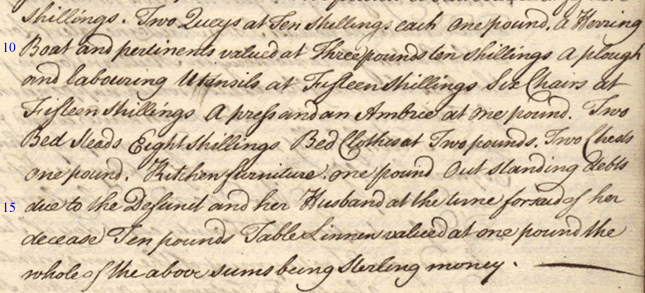 Shillings. Two Queys at Ten Shillings each One pound. A Herring
10 Boat and pertinents valued at Three pounds ten shillings A plough
and labouring Utensils at Fifteen Shillings Six Chairs at
Fifteen Shillings A press and an Ambrie at one pound. Two
Bed Steads Eight Shillings Bed Clothes at Two pounds. Two Chests
One pound. Kitchen furniture one pound Out standing debts
15 due to the Defunct and her Husband at the time forsaid of her
decease Ten pounds Table Linnen valued at one pound the
whole of the above sums being Sterling money.